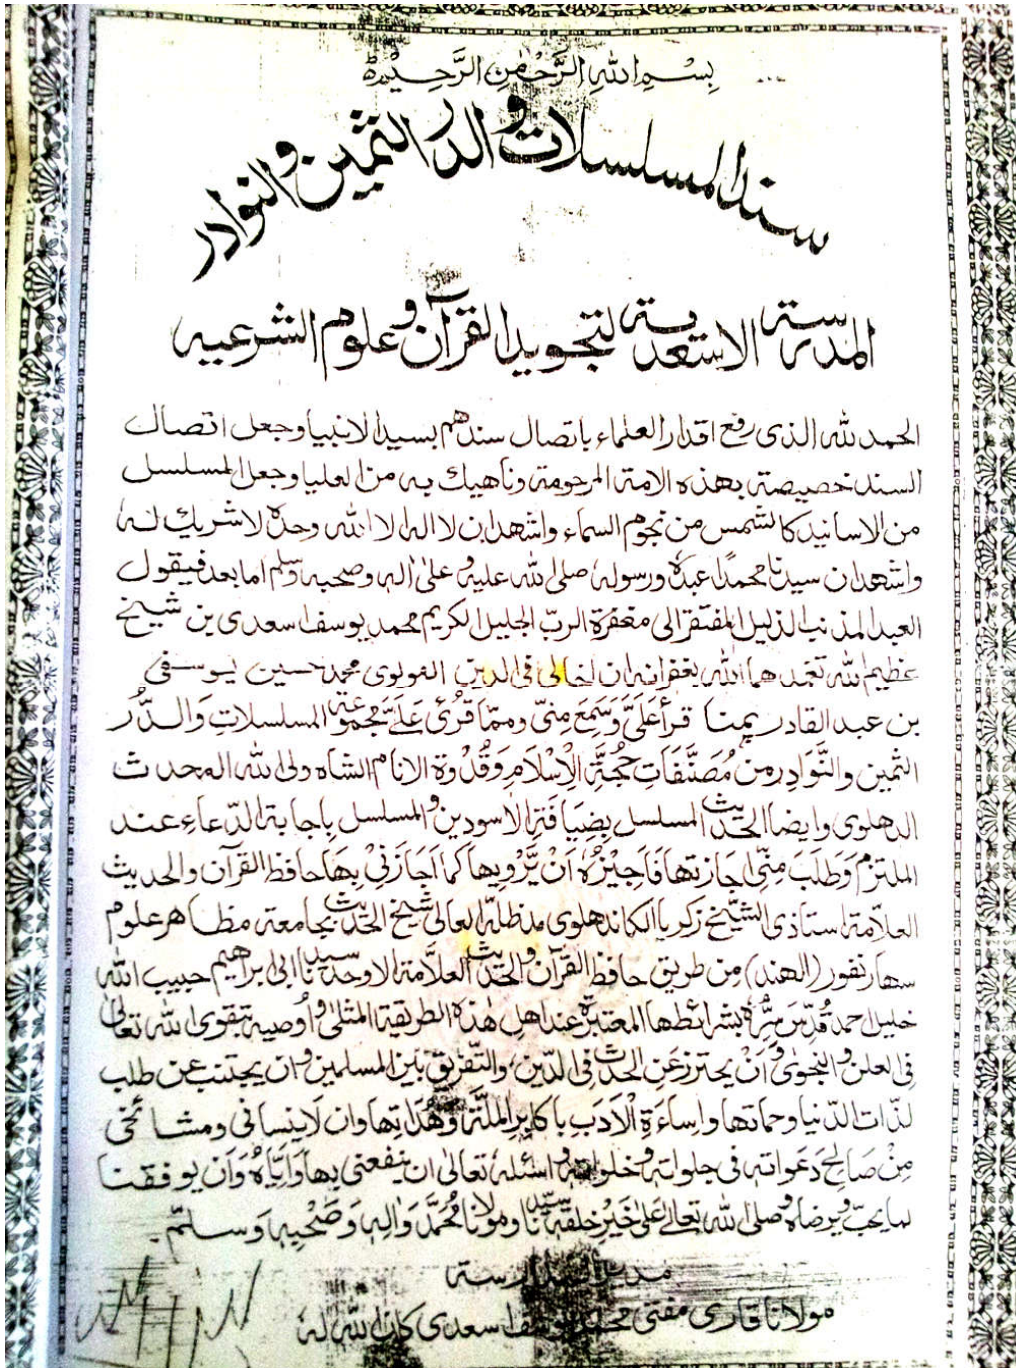 بسم الله الرحمن الرحيم
سند المسلسلات و الدر الثمين و النوادر
المدرسة الاسعدية لتجويد القرآن و علوم الشرعيه
الحمد لله الذى رفع اقدار العلماء باتصال سندهم بسيد الانبيا وجعل اتصال
السند خصيصة بهذه الامة المرحومة وناهيك به من العليا وجعل المسلسل
من الاسانيد كالشمس من نجوم السماء واشهد ان لا اله الا الله وحدهٗ لا شريك لهٗ
واشهد ان سيدنا محمدًا عبدهٗ ورسولهٗ صلى الله عليه و على اٰله وصحبه وسلم اما بعد فيقول
العبد المذنب الذليل المفتقر الى مغفرة الربّ الجليل الكريم محمد يوسف اسعدى بن شيخ
عظيم الله تغمدهما الله بغفرانه ان اخالى فى الدين المولوى محمد حسين يوسفى
بن عبد القادر يمنا قرأ عَلَىَّ وسَمِعَ مِنّى ومما قُرئَ عَلَىَّ مجموعة المسلسلاتِ وَالدُّر
الثمين والنَّوَادِر من مُصَنَّفَاتِ حُجَّةِ الْاِسْلَامِ وَقُدْوَة الانام الشاه ولى الله المحدث
الدهلوى وايضا الحديث المسلسل بِضِيَافَةِ الاسودين و المسلسل بِاجابة الدّعاءِ عند
الملتزم وَطَلَبَ مِنّى اجازتها فَاَجِيْزُهٗ اَنْ يَّرْوِيها كما اَجَازَنِيْ بِهَا حافظ القرآن والحديث
العلاّمة استاذى الشيخ زكريا الكاندهلوى مد ظلهٗ العالى شيخ الحديث بجامعة مظاهر علوم
سهارنفور (الهند) مِن طريق حافظ القرآن و الحديث العلَّامة الاوحد سيدنا ابى ابراهيم حبيب الله
خليل احمد قُدِّسَ سِرُّهٗ بشرائطها المعتبرة عند اهل هٰذه الطريقة المثلىٰ و اُوصيه بتقوى الله تعالىٰ
فى العلن و النجوىٰ وَ اَنْ يحترز عَنِ الحدث فى الدّين، والتّفريق بَين المسلمين و ان يجتنب عن طلب
لذّات الدّنيا وحماتها واِساءَةِ الْاَدَبِ باكابرِ الملّة وَهُدَاتِها وان لَا ينسانى ومشائخى
مِنْ صَالِحِ دَعَواته فى جلواته وخلواته و اسئلهٗ تعالىٰ ان ينفعنى بها وَاِيَّاهُ وَاَن يوفقنا
لما يحبّ ويرضاه و صلى الله تعالىٰ عَلىٰ خَيْرِ خلقه سيّدنا ومولانا مُحمَّد وَاٰلِهٖ وَصَحْبِهٖ وَسلّم۔
مدير المدرسة
مولانا قارى مفتى محمد يوسف اسعدى كان الله لهٗ